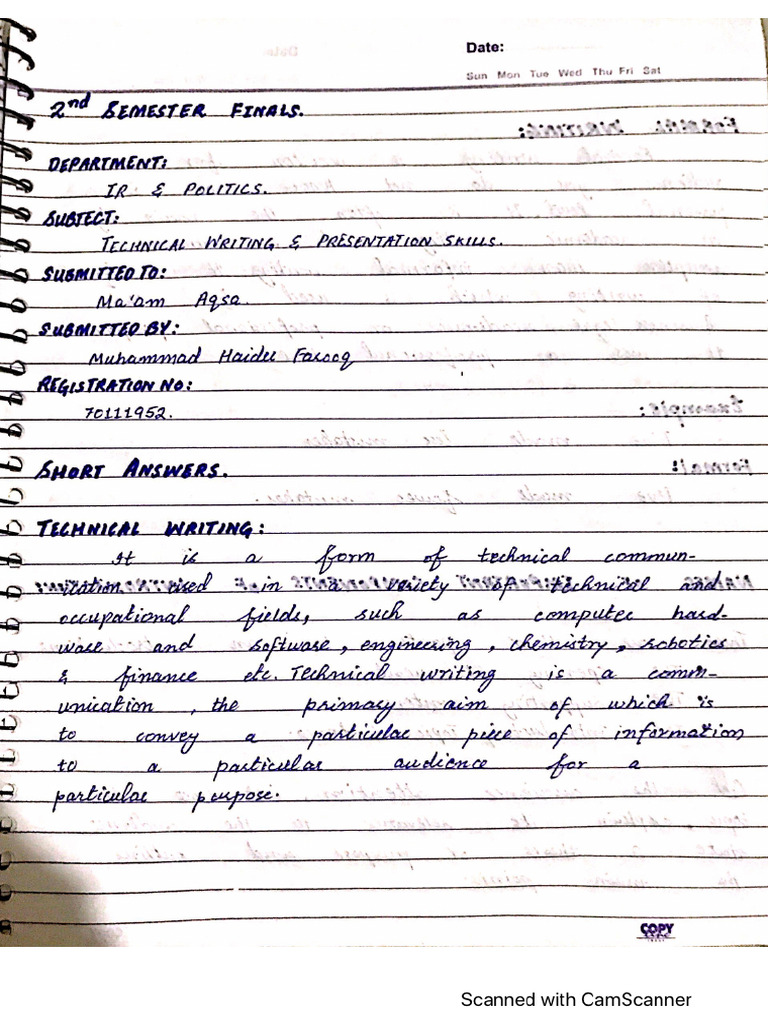 Date:
Sun Mon Tue Wed Thu Fri Sat
2nd SEMESTER FINALS.
DEPARTMENT:
IR & POLITICS.
SUBJECT:
TECHNICAL WRITING & PRESENTATION SKILLS.
SUBMITTED TO:
Ma'am Aqsa.
SUBMITTED BY:
Muhammad Haider Farooq
REGISTRATION NO:
70111952.
SHORT ANSWERS.
TECHNICAL WRITING:
It is a form of technical commun-
ication used in a variety of technical and
occupational fields, such as computer hard-
ware and software, engineering, chemistry, robotics
& finance etc. Technical writing is a comm-
unication, the primary aim of which is
to convey a particular piece of information
to a particular audience for a
particular purpose.
COPY
Scanned with CamScanner